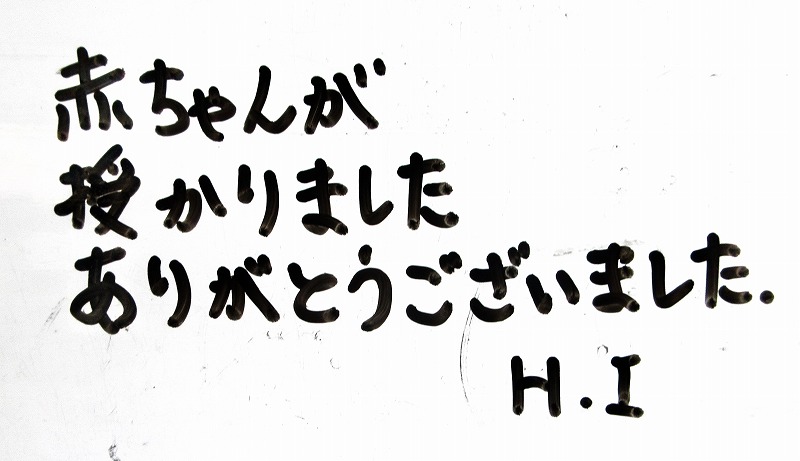 赤ちゃんが
授かりました
ありがとうございました.
H.I